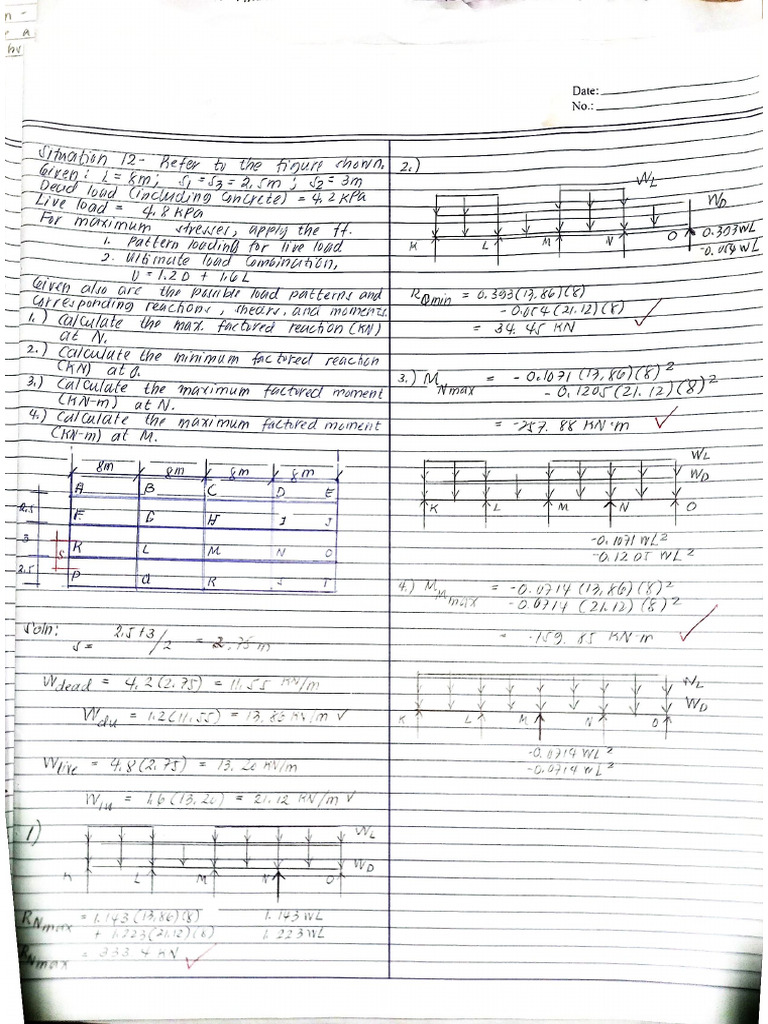 Date:
No.:
Situation 12- Refer to the figure shown.
Given: L = 8m; S1 = S3 = 2.5m; S2 = 3m
Dead load (including concrete) = 4.2 kPa
Live load = 4.8 kPa
For maximum stresses, apply the ff.
1. pattern loading for live load
2. ultimate load combination,
U = 1.2D + 1.6L
Given also are the possible load patterns and
corresponding reactions, shears, and moments.
1.) Calculate the max. factored reaction (KN)
at N.
2.) Calculate the minimum factored reaction
(KN) at O.
3.) Calculate the maximum factored moment
(KN-m) at N.
4.) Calculate the maximum factored moment
(KN-m) at M.
8m 8m 8m 8m
A B C D E
2.5
F G H I J
3
S
K L M N O
2.5
P Q R S T
Soln:
S = 2.5+3/2 = 2.75m
Wdead = 4.2(2.75) = 11.55 KN/m
Wdu = 1.2(11.55) = 13.86 KN/m ✓
Wlive = 4.8(2.75) = 13.20 KN/m
WLu = 1.6(13.20) = 21.12 KN/m ✓
1)
WL
WD
K L M N O
RNmax = 1.143(13.86)(8) 1.143WL
+ 1.223(21.12)(8) 1.223WL
RNmax = 333.4 KN ✓
2.)
WL
WD
K L M N O
0.393WL
-0.054WL
ROmin = 0.393(13.86)(8)
-0.054(21.12)(8)
= 34.45 KN ✓
3.) MNmax = -0.1071(13.86)(8)²
-0.1205(21.12)(8)²
= -257.88 KN·m ✓
WL
WD
K L M N O
-0.1071 WL²
-0.1205 WL²
4.) MMmax = -0.0714(13.86)(8)²
-0.0714(21.12)(8)²
= -159.85 KN·m ✓
WL
WD
K L M N O
-0.0714 WL²
-0.0714 WL²